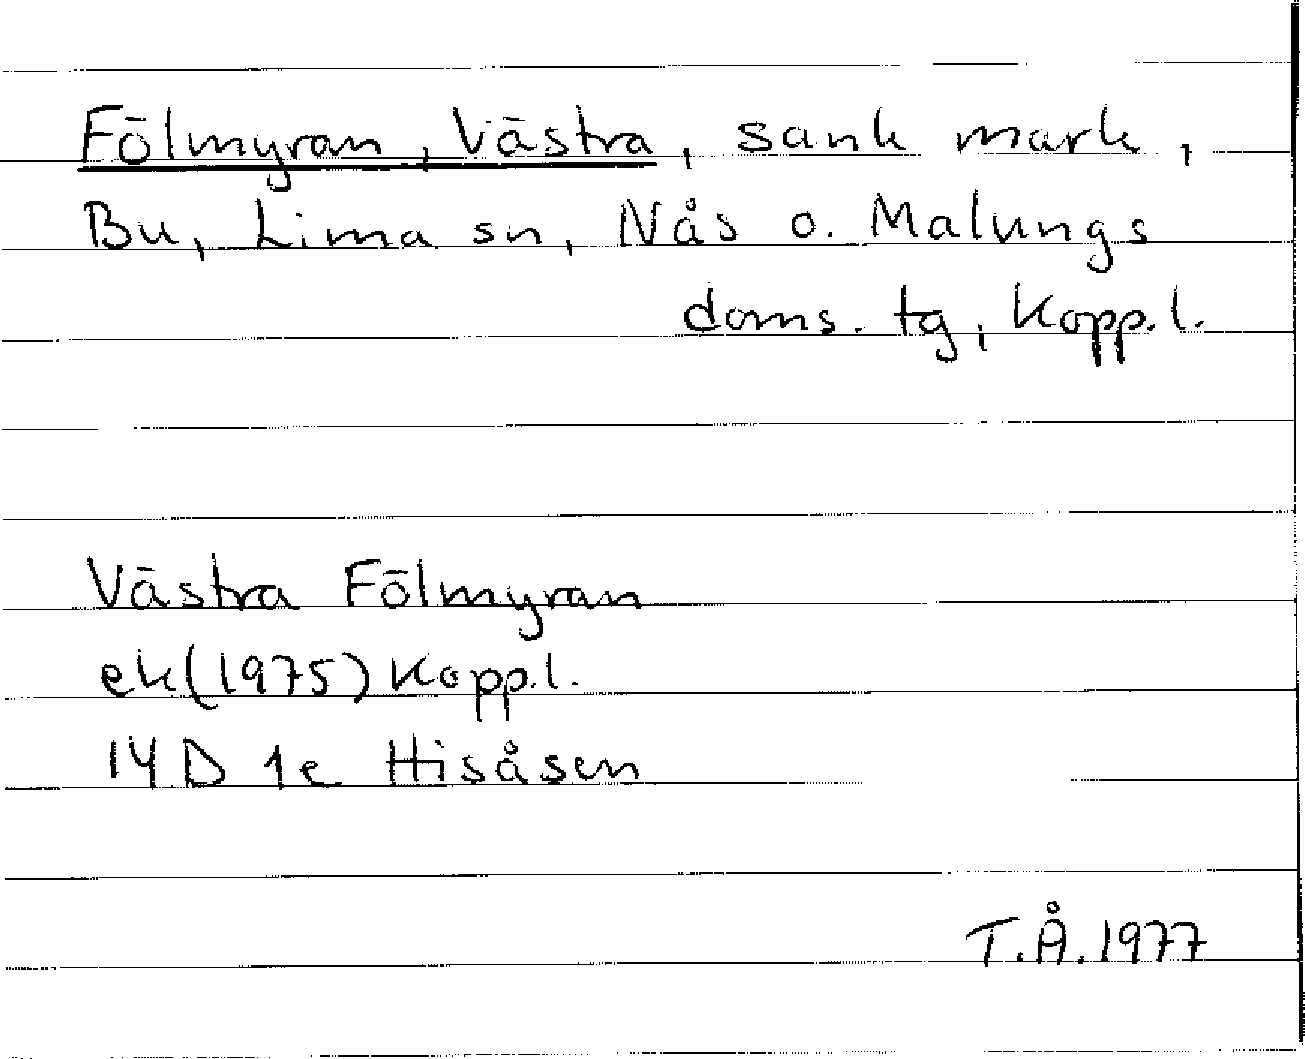 Fölmyran, Västra, sank mark,
Bu, Lima sn, Nås o. Malungs
doms. tg, Kopp.l.
Västra Fölmyran
ek(1975) Kopp.l.
14D 1e Hisåsen
T.Å.1977